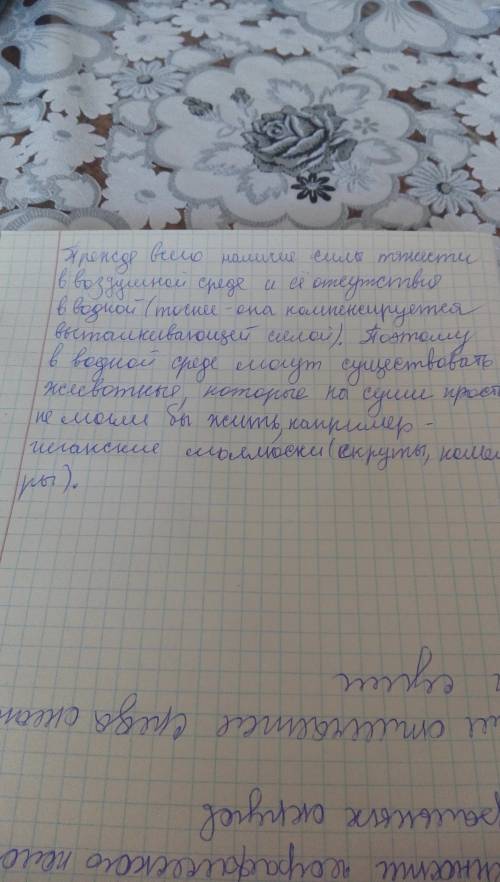 Прежде всего наличие силы тяжести
в воздушной среде и её отсутствие
в водной (точнее - она компенсируется
выталкивающей силой). Поэтому
в водной среде могут существовать
животные, которые на суши прост
не могли бы жить, например -
гиганские моллюски (скруты, кома
ры).
суши
отличается среда океан
округов
географического поло